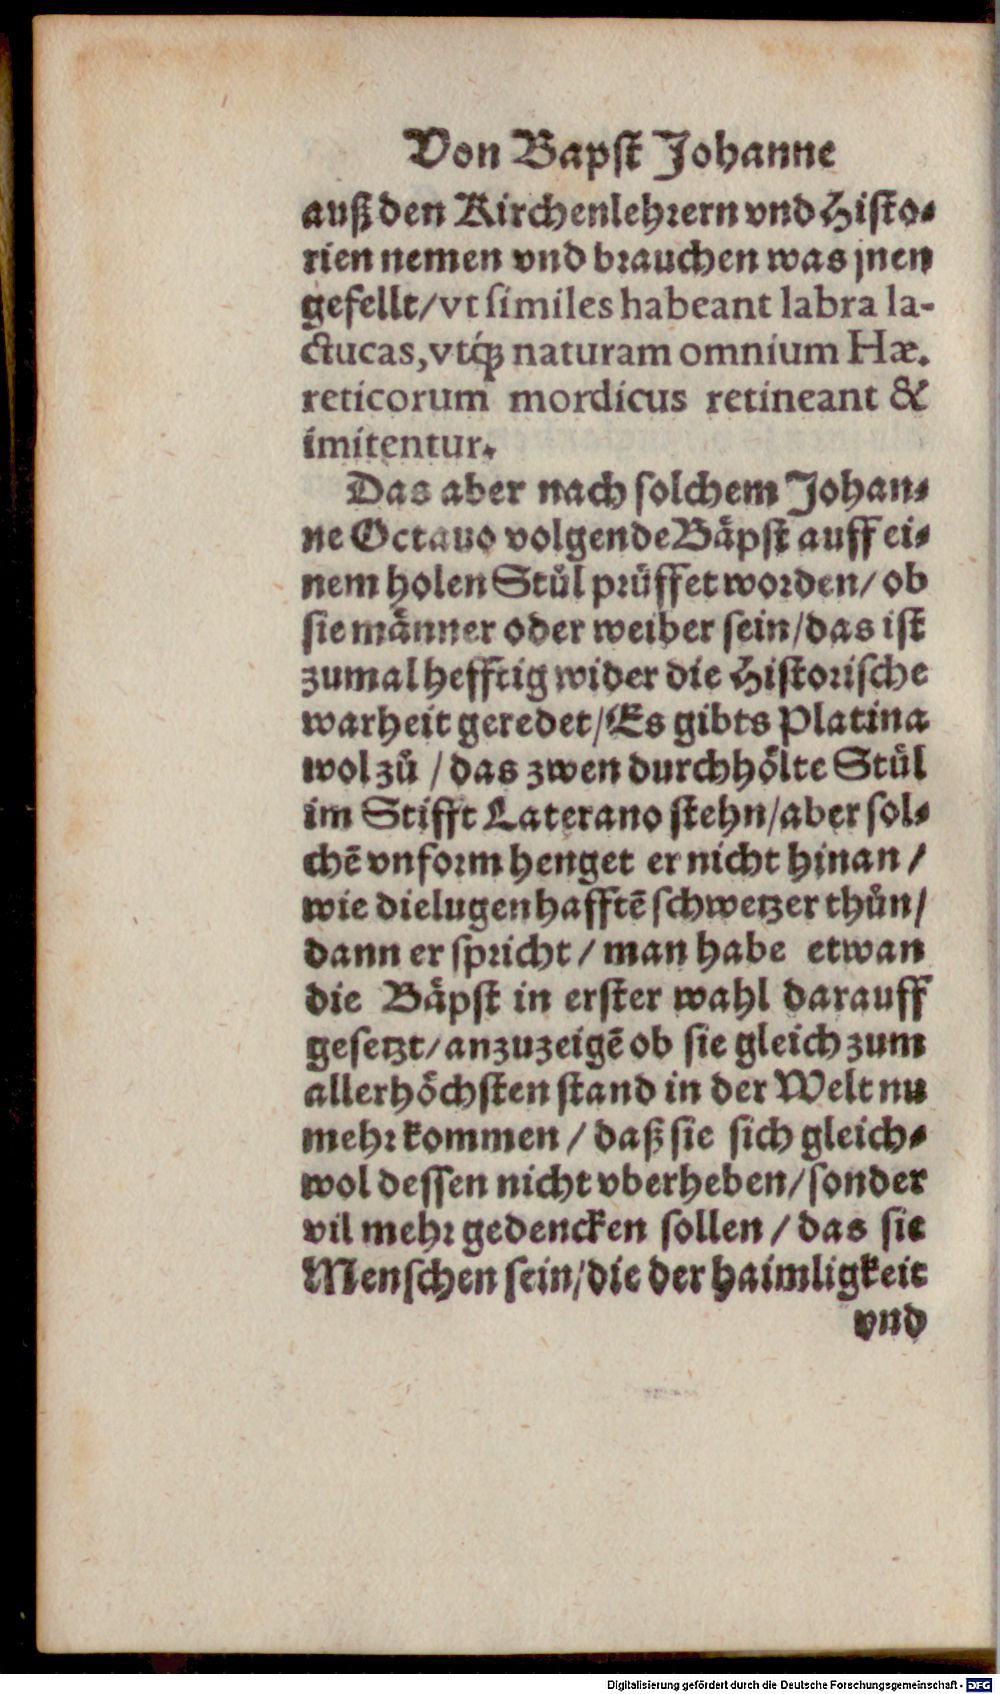 Von Bapst Johanne
auß den Kirchenlehrern vnd Histo-
rien nemen vnd brauchen was jnen
gefellt/vt similes habeant labra la-
ctucas, vtq́; naturam omnium Hæ.
reticorum mordicus retineant &
imitentur.
Das aber nach solchem Johan-
ne Octauo volgende Bäpst auff ei-
nem holen Stůl průffet worden/ ob
sie männer oder weiber sein/das ist
zumal hefftig wider die Historische
warheit geredet/Es gibts Platina
wol zů / das zwen durchhölte Stůl
im Stifft Laterano stehn/aber sol-
chē vnform henget er nicht hinan /
wie dielugenhafftē schwetzer thůn/
dann er spricht / man habe etwan
die Bäpst in erster wahl darauff
gesetzt/anzuzeigē ob sie gleich zum
allerhöchsten stand in der Welt nu
mehr kommen / daß sie sich gleich-
wol dessen nicht vberheben/sonder
vil mehr gedencken sollen / das sie
Menschen sein/die der haimligkeit
vnd
Digitalisierung gefördert durch die Deutsche Forschungsgemeinschaft - DFG